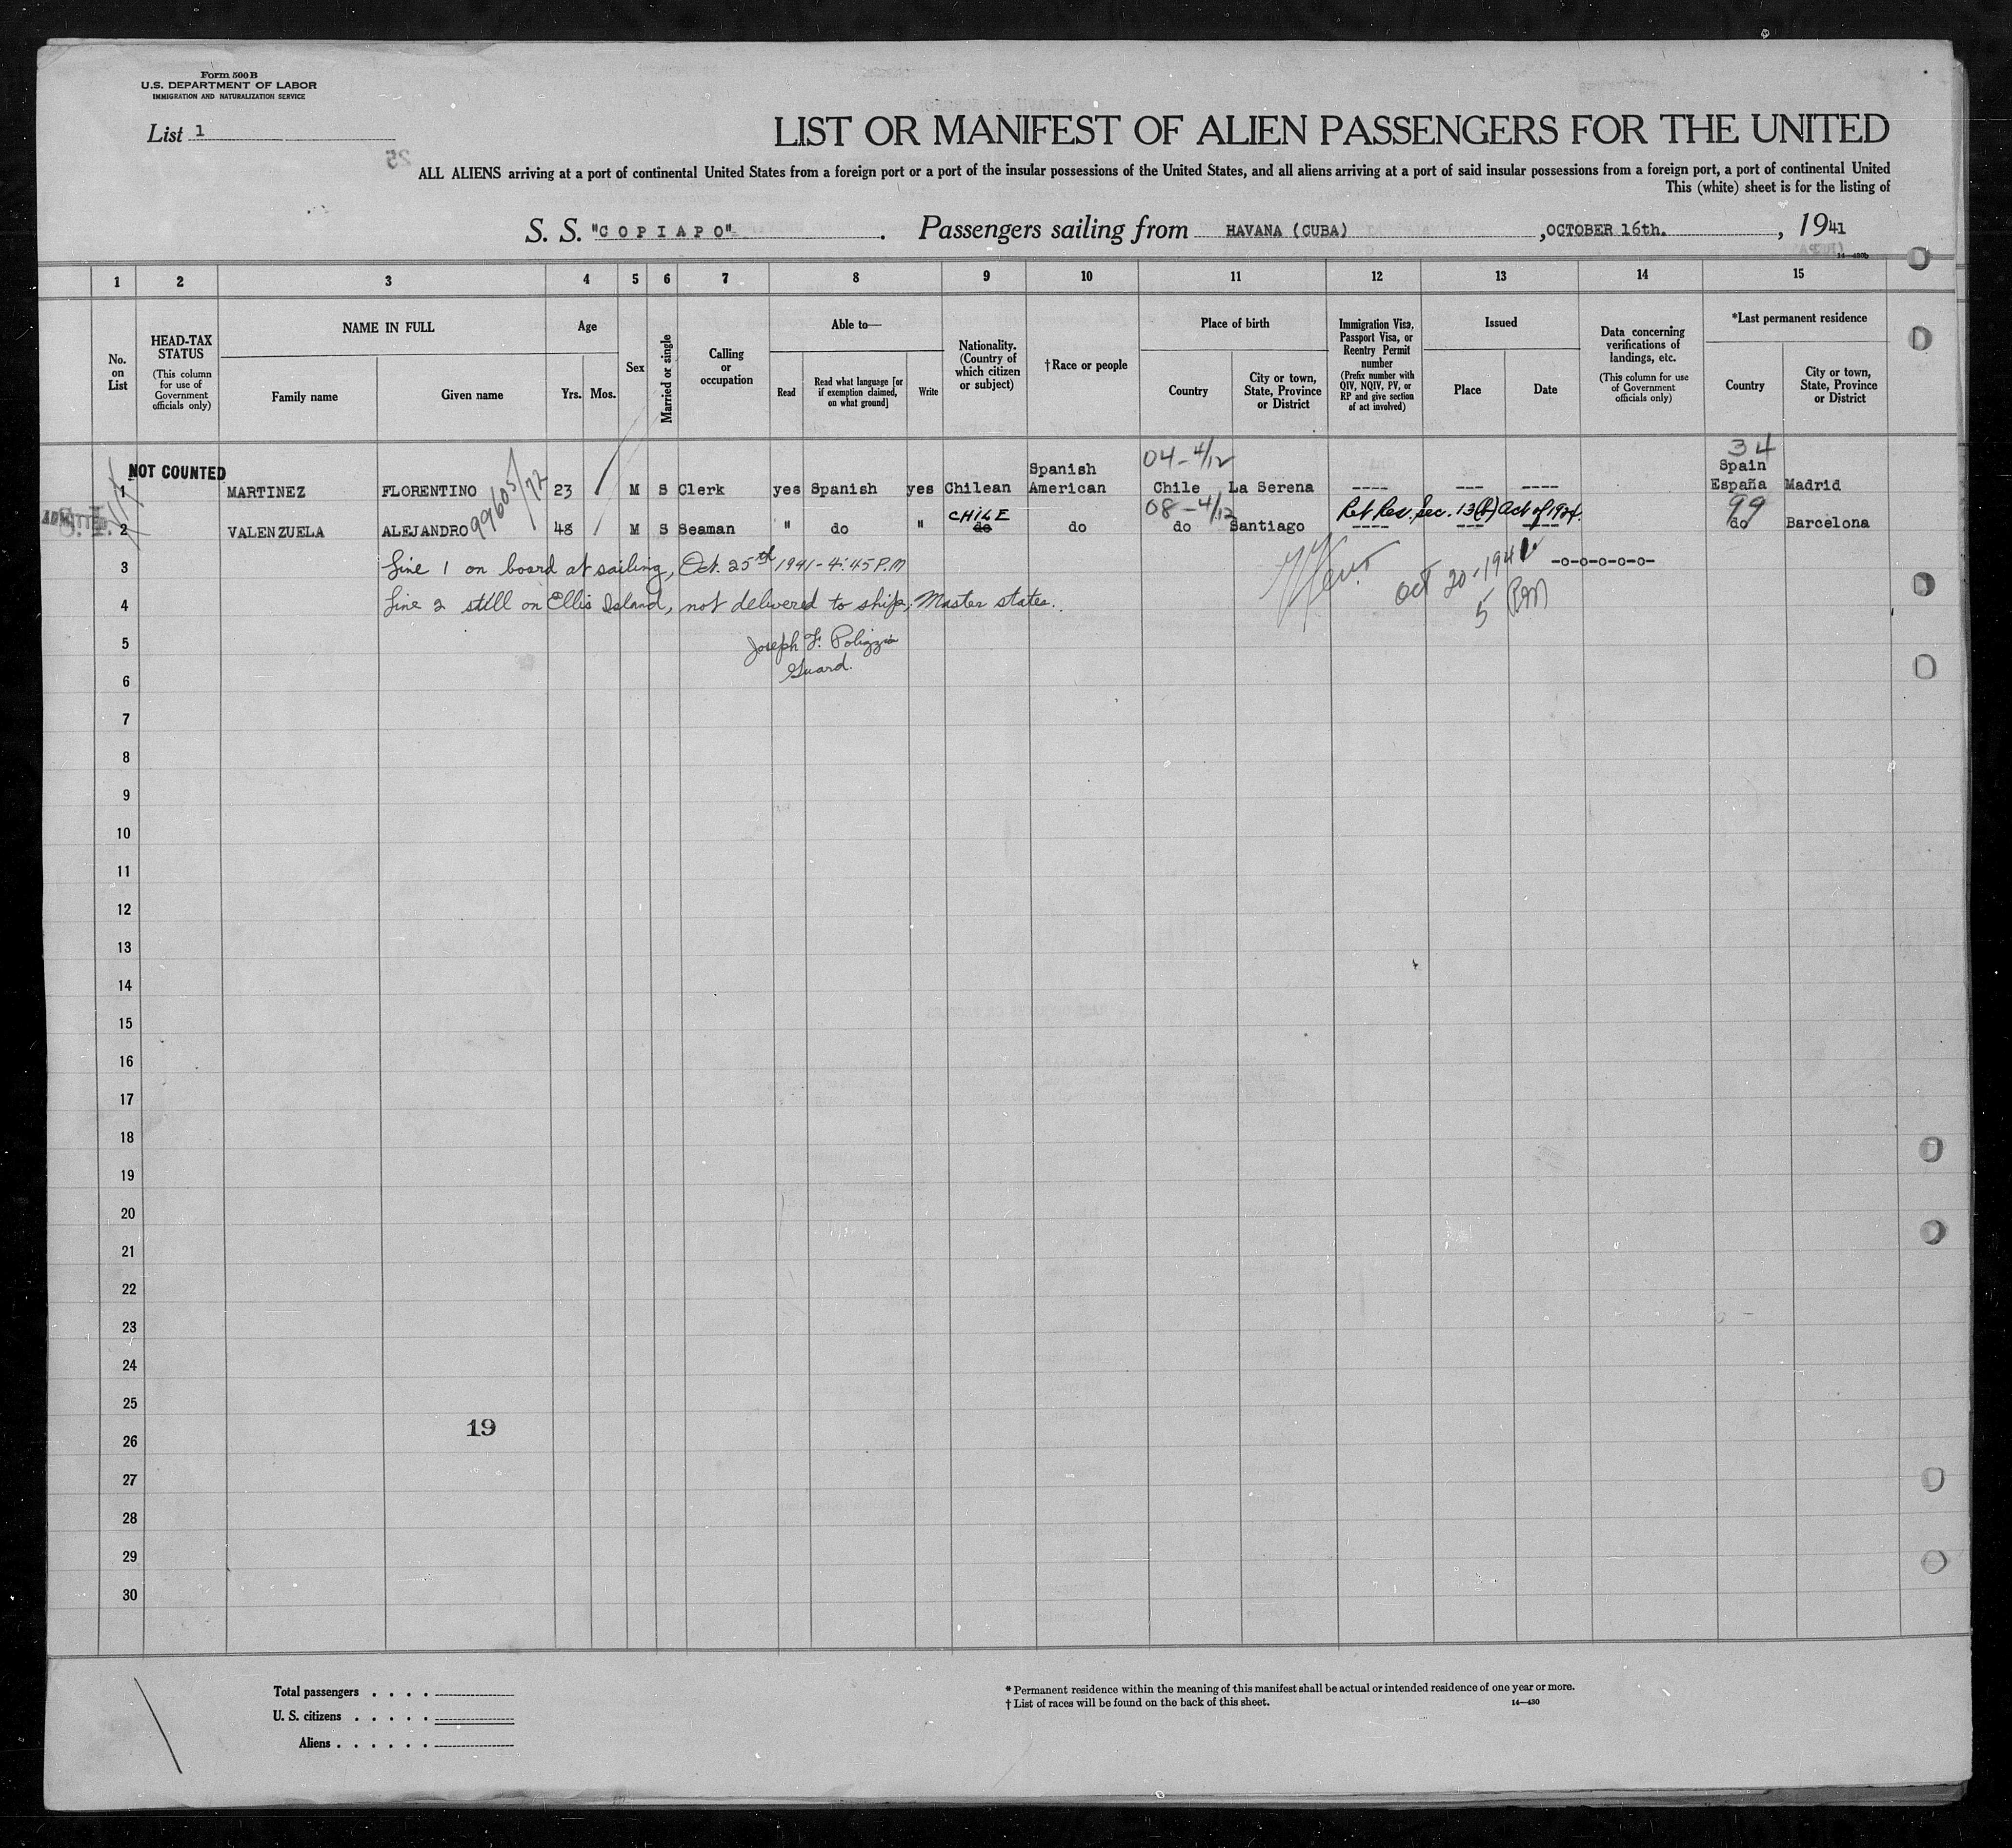 Form 500 B
U.S. DEPARTMENT OF LABOR
IMMIGRATION AND NATURALIZATION SERVICE
List 1
LIST OR MANIFEST OF ALIEN PASSENGERS FOR THE UNITED
ALL ALIENS arriving at a port of continental United States from a foreign port or a port of the insular possessions of the United States, and all aliens arriving at a port of said insular possessions from a foreign port, a port of continental United
This (white) sheet is for the listing of
S. S. "COPIAPO". Passengers sailing from HAVANA (CUBA), OCTOBER 16th., 1941
14—430b
1 2 3 4 5 6 7 8 9 10 11 12 13 14 15
No. on List
HEAD-TAX STATUS (This column for use of Government officials only)
NAME IN FULL
Family name
Given name
Age
Yrs.
Mos.
Sex
Married or single
Calling or occupation
Able to—
Read
Read what language [or if exemption claimed, on what ground]
Write
Nationality. (Country of which citizen or subject)
†Race or people
Place of birth
Country
City or town, State, Province or District
Immigration Visa, Passport Visa, or Reentry Permit number (Prefix number with QIV, NQIV, PV, or RP and give section of act involved)
Issued
Place
Date
Data concerning verifications of landings, etc. (This column for use of Government officials only)
*Last permanent residence
Country
City or town, State, Province or District
04-4/12 34
NOT COUNTED Spanish Spain
1 MARTINEZ FLORENTINO 99605/72 23 M S Clerk yes Spanish yes Chilean American Chile La Serena ---- --- ---- España Madrid
CHILE 08-4/12 Ret Rev. Sec. 13(b) Act of 1924. 99
ADMITTED
2 VALENZUELA ALEJANDRO 48 M S Seaman " do " do do do Santiago ---- --- ---- do Barcelona
3 Line 1 on board at sailing, Oct. 25th 1941 - 4:45 P.M Oct 20-1941 -o-o-o-o-o-
4 Line 2 still on Ellis Island, not delivered to ship, Master states. 5 PM
5 Joseph F. Polizzi
Guard.
6
7
8
9
10
11
12
13
14
15
16
17
18
19
20
21
22
23
24
25
19
26
27
28
29
30
Total passengers . . . .
U. S. citizens . . . . .
Aliens . . . . . .
* Permanent residence within the meaning of this manifest shall be actual or intended residence of one year or more.
† List of races will be found on the back of this sheet. 14—430